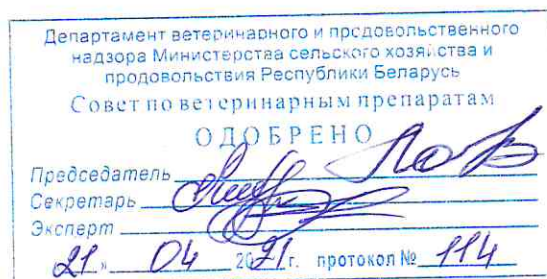 Департамент ветеринарного и продовольственного
надзора Министерства сельского хозяйства и
продовольствия Республики Беларусь
Совет по ветеринарным препаратам
ОДОБРЕНО
Председатель
Секретарь
Эксперт
21 » 04 2021 г. протокол № 114